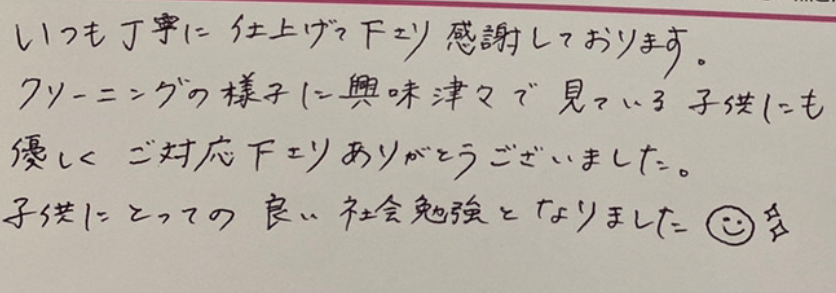 いつも丁寧に仕上げて下さり感謝しております。
クリーニングの様子に興味津々で見ている子供にも
優しくご対応下さりありがとうございました。
子供にとっての良い社会勉強となりました